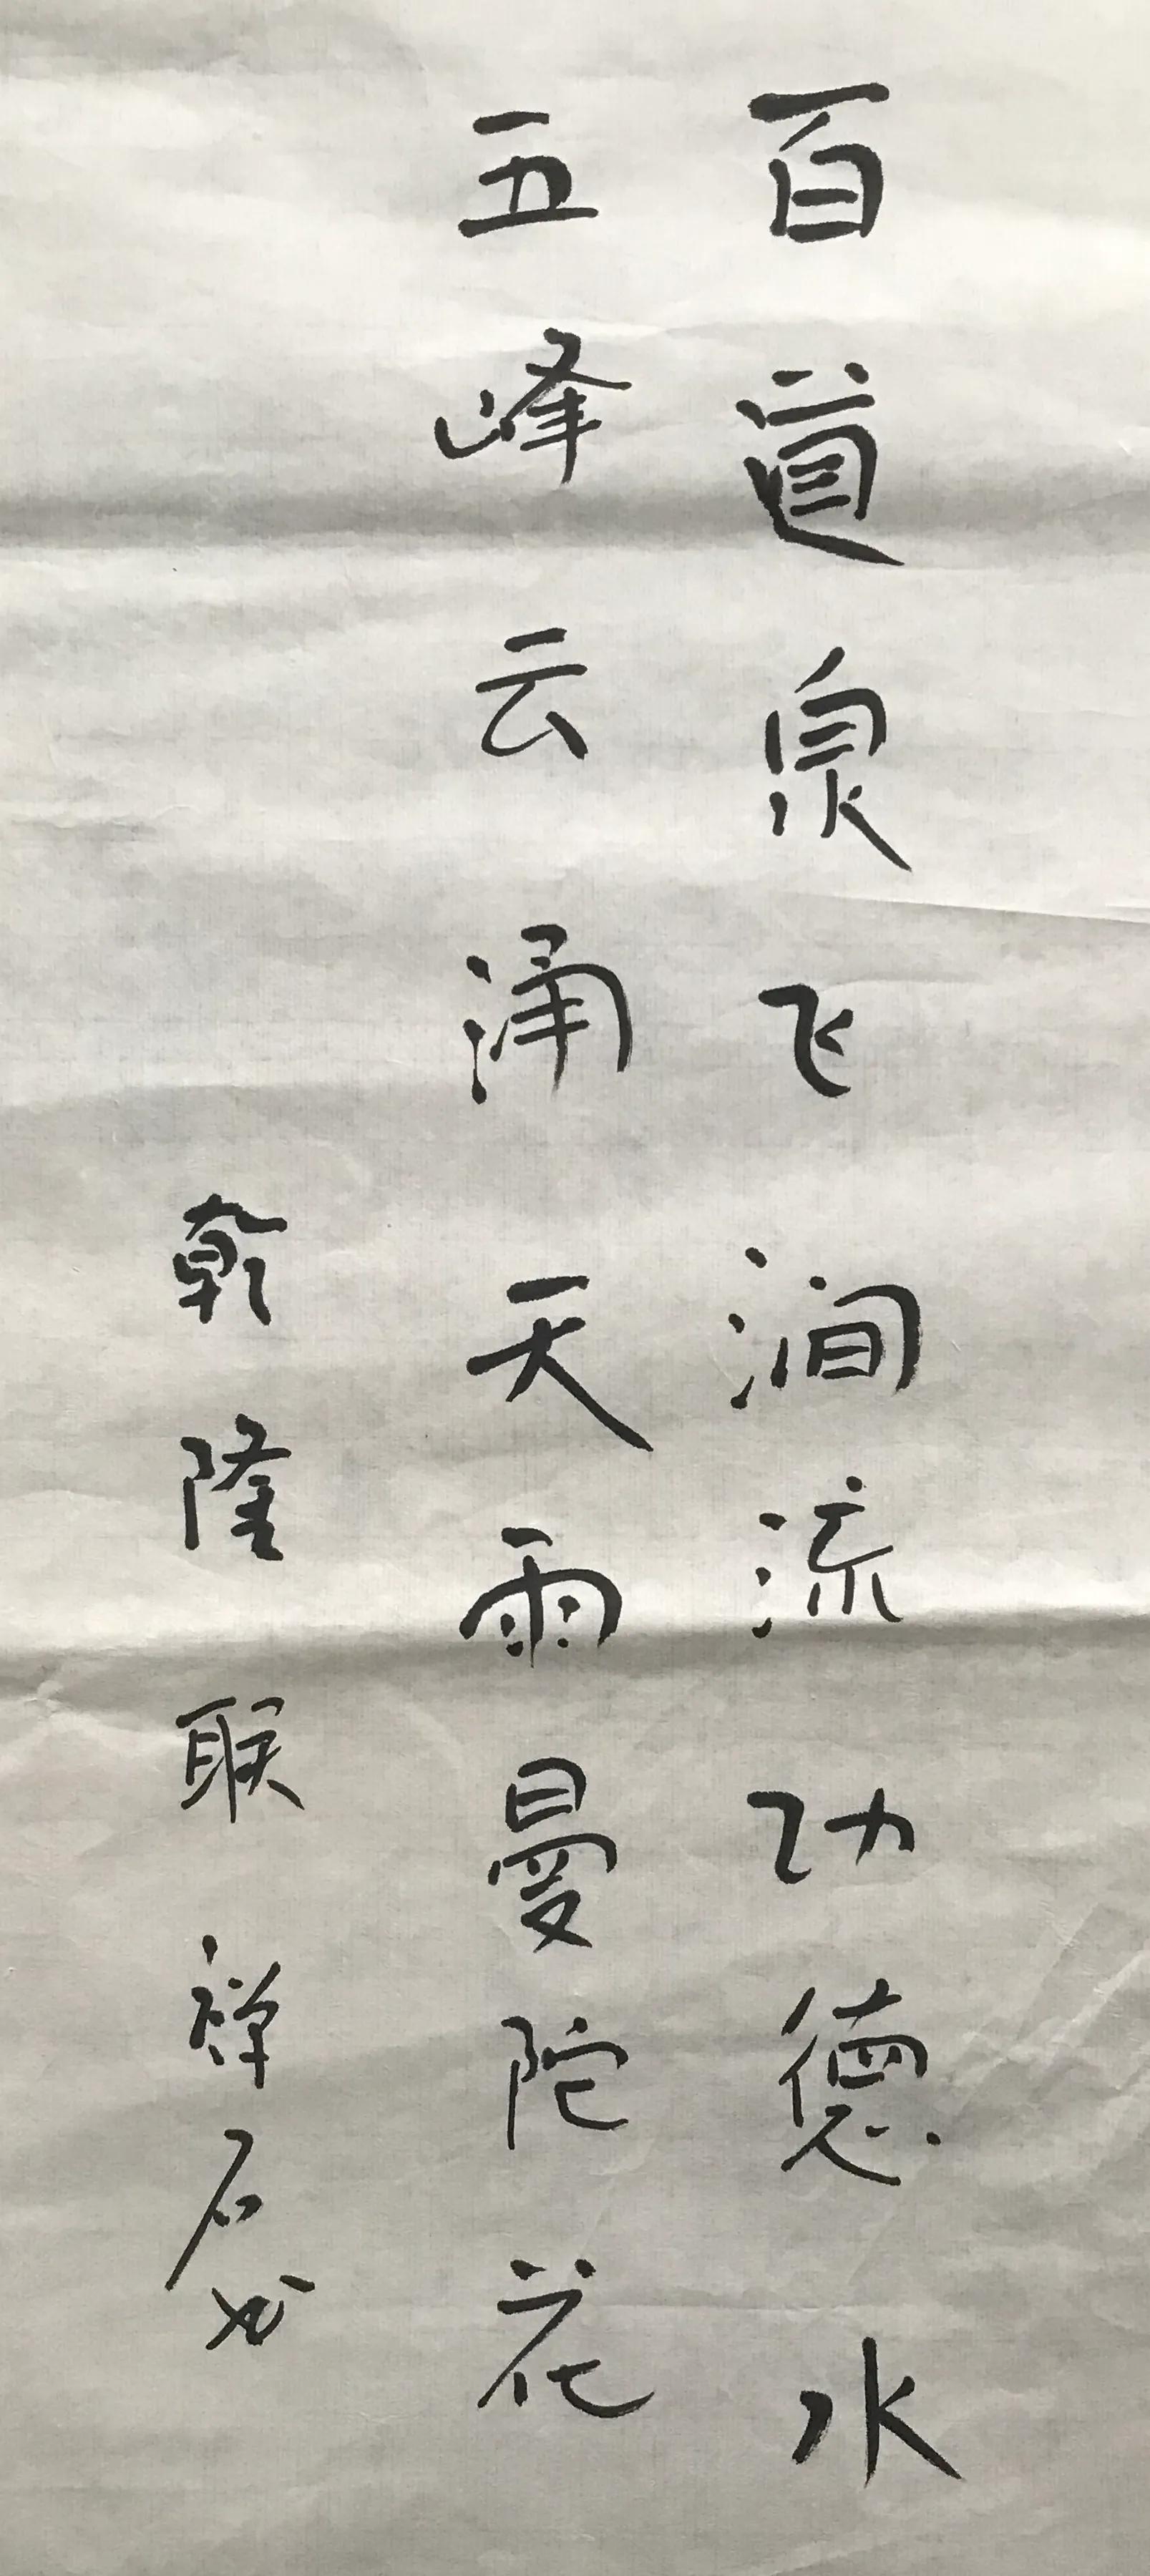 百道泉飞涧流功德水
五峰云涌天雨曼陀花
乾隆联 禅石书